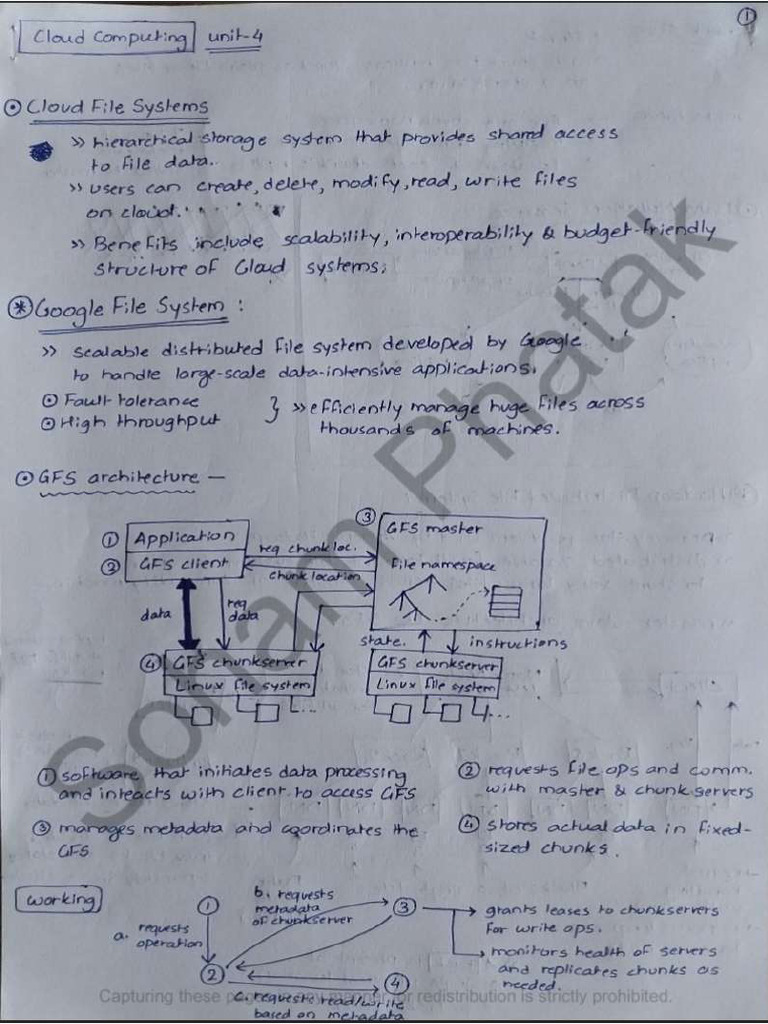 ①
Cloud Computing unit-4
⊙ Cloud File Systems
» hierarchical storage system that provides shared access
to file data..
» users can create, delete, modify, read, write files
on cloud.
» Benefits include scalability, interoperability & budget-friendly
structure of Cloud systems.
⊛ Google File System :
» scalable distributed file system developed by Google
to handle large-scale data-intensive applications.
⊙ Fault tolerance
⊙ High throughput
} » efficiently manage huge files across
thousands of machines.
⊙ GFS architecture —
① Application
② GFS client
req chunk loc.
chunk location
③ GFS master
File namespace
data
req
data
state.
instructions
④ GFS chunkserver
Linux file system
...
GFS chunkserver
Linux file system
...
① software that initiates data processing
and inteacts with client to access GFS
② requests file ops and comm.
with master & chunk servers
③ manages metadata and coordinates the
GFS
④ stores actual data in fixed-
sized chunks.
Working
①
a. requests
operation
②
b. requests
metadata
of chunkserver
③
grants leases to chunkservers
for write ops.
monitors health of servers
and replicates chunks as
needed.
④
c. requests read/write
based on metadata
Soham Phatak
Capturing these redistribution is strictly prohibited.